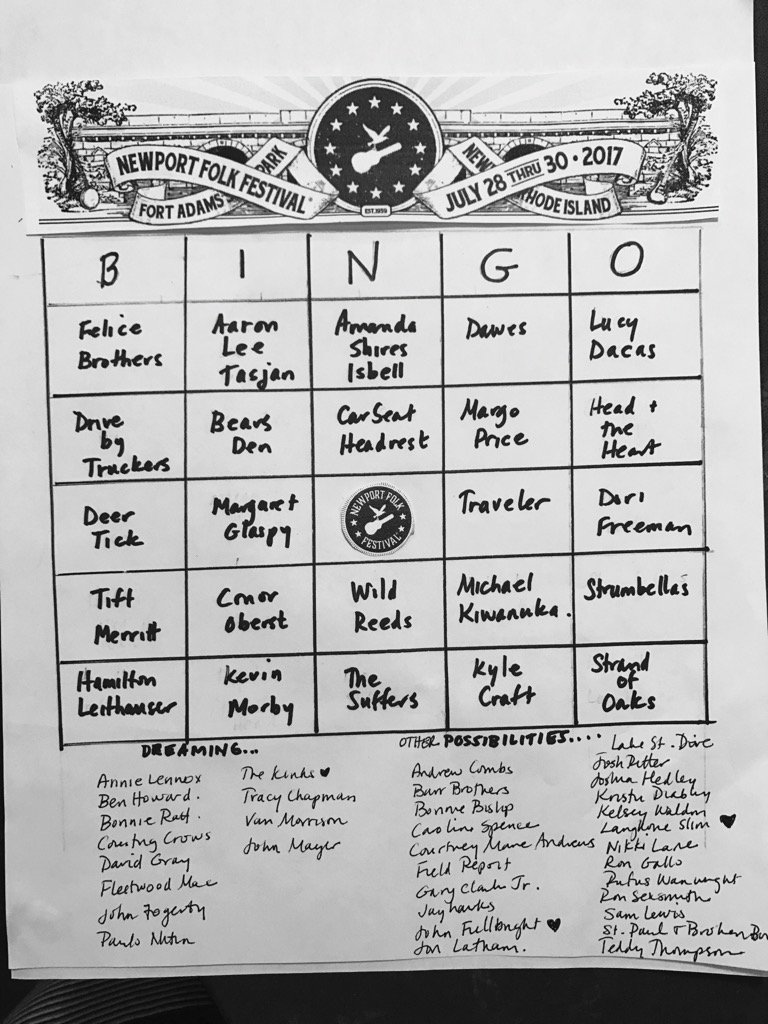 NEWPORT FOLK FESTIVAL
FORT ADAMS PARK
EST. 1959
JULY 28 THRU 30 • 2017
NEW RHODE ISLAND
B I N G O
Felice
Brothers
Aaron
Lee
Tasjan
Amanda
Shires
Isbell
Dawes
Lucy
Dacas
Drive
by
Truckers
Bears
Den
Car Seat
Headrest
Margo
Price
Head +
the
Heart
Deer
Tick
Margaret
Glaspy
NEWPORT FOLK
FESTIVAL
Traveler
Dori
Freeman
Tift
Merritt
Conor
Oberst
Wild
Reeds
Michael
Kiwanuka.
Strumbellas
Hamilton
Leithauser
Kevin
Morby
The
Suffers
Kyle
Craft
Strand
of
Oaks
DREAMING...
Annie Lennox
Ben Howard.
Bonnie Raitt.
Counting Crows
David Gray
Fleetwood Mac
John Fogerty
Paulo Nutini
The Kinks ♥
Tracy Chapman
Van Morrison
John Mayer
OTHER POSSIBILITIES....
Andrew Combs
Barr Brothers
Bonnie Bishop
Caroline Spence
Courtney Marie Andrews
Field Report
Gary Clark Jr.
Jayhawks
John Fullbright ♥
Jon Latham.
Lake St. Dive
Josh Ritter
Joshua Hedley
Kristin Diabley
Kelsey Waldon
Langhorne Slim ♥
Nikki Lane
Ron Gallo
Rufus Wainwright
Ron Sexsmith
Sam Lewis
St. Paul & Broken
Teddy Thompson